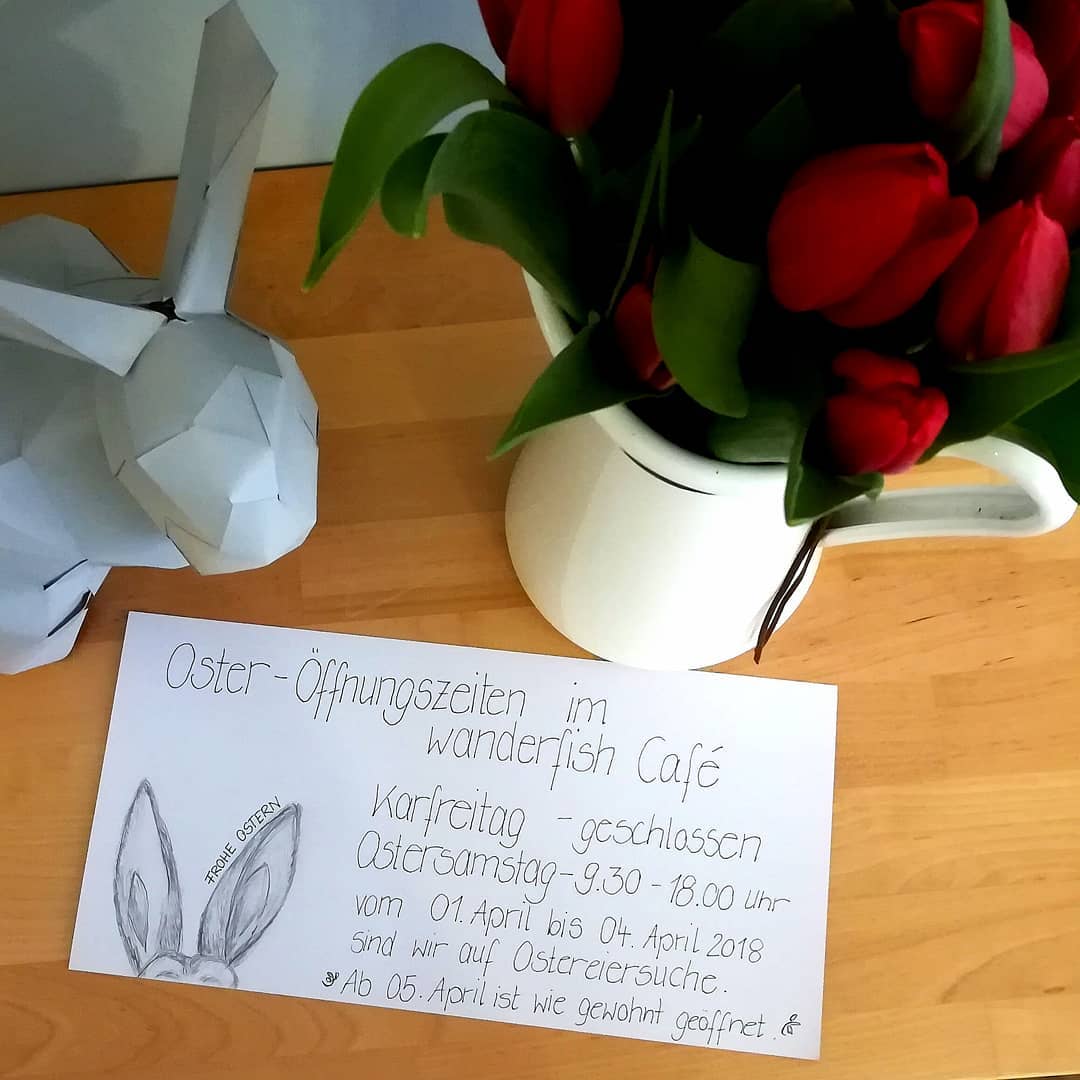 Oster-Öffnungszeiten im
wanderfish Café
FROHE OSTERN
Karfreitag - geschlossen
Ostersamstag - 9.30 - 18.00 Uhr
vom 01. April bis 04. April 2018
sind wir auf Ostereiersuche.
Ab 05. April ist wie gewohnt geöffnet.